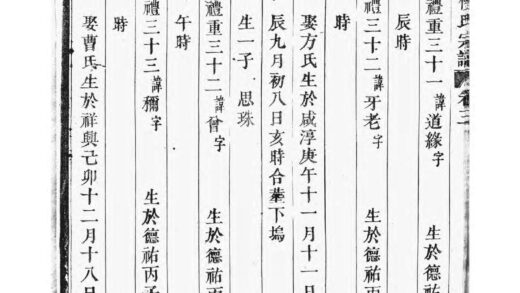 氏宗譜 卷三
禮重三十一 諱道緣字 生於德祐
辰時
禮重三十二 諱牙老字 生於德祐丙
時
娶方氏生於咸淳庚午十一月十一日
辰九月初八日亥時合葬下塢
生一子 思珠
禮重三十二 諱曾字 生於德祐丙
午時
禮重三十三 諱禰字 生於德祐丙子
時
娶曹氏生於祥興己卯十二月十八日